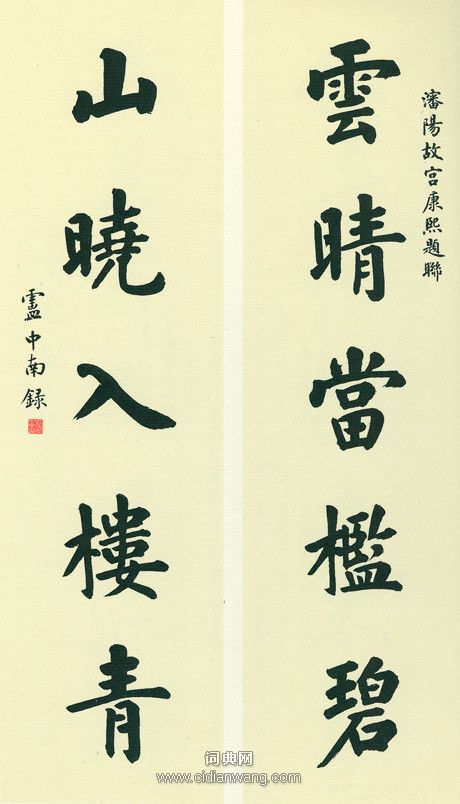 瀋陽故宫康熙題聯
雲晴當檻碧
山曉入樓青
盧中南録
词典网
www.cidianwang.com